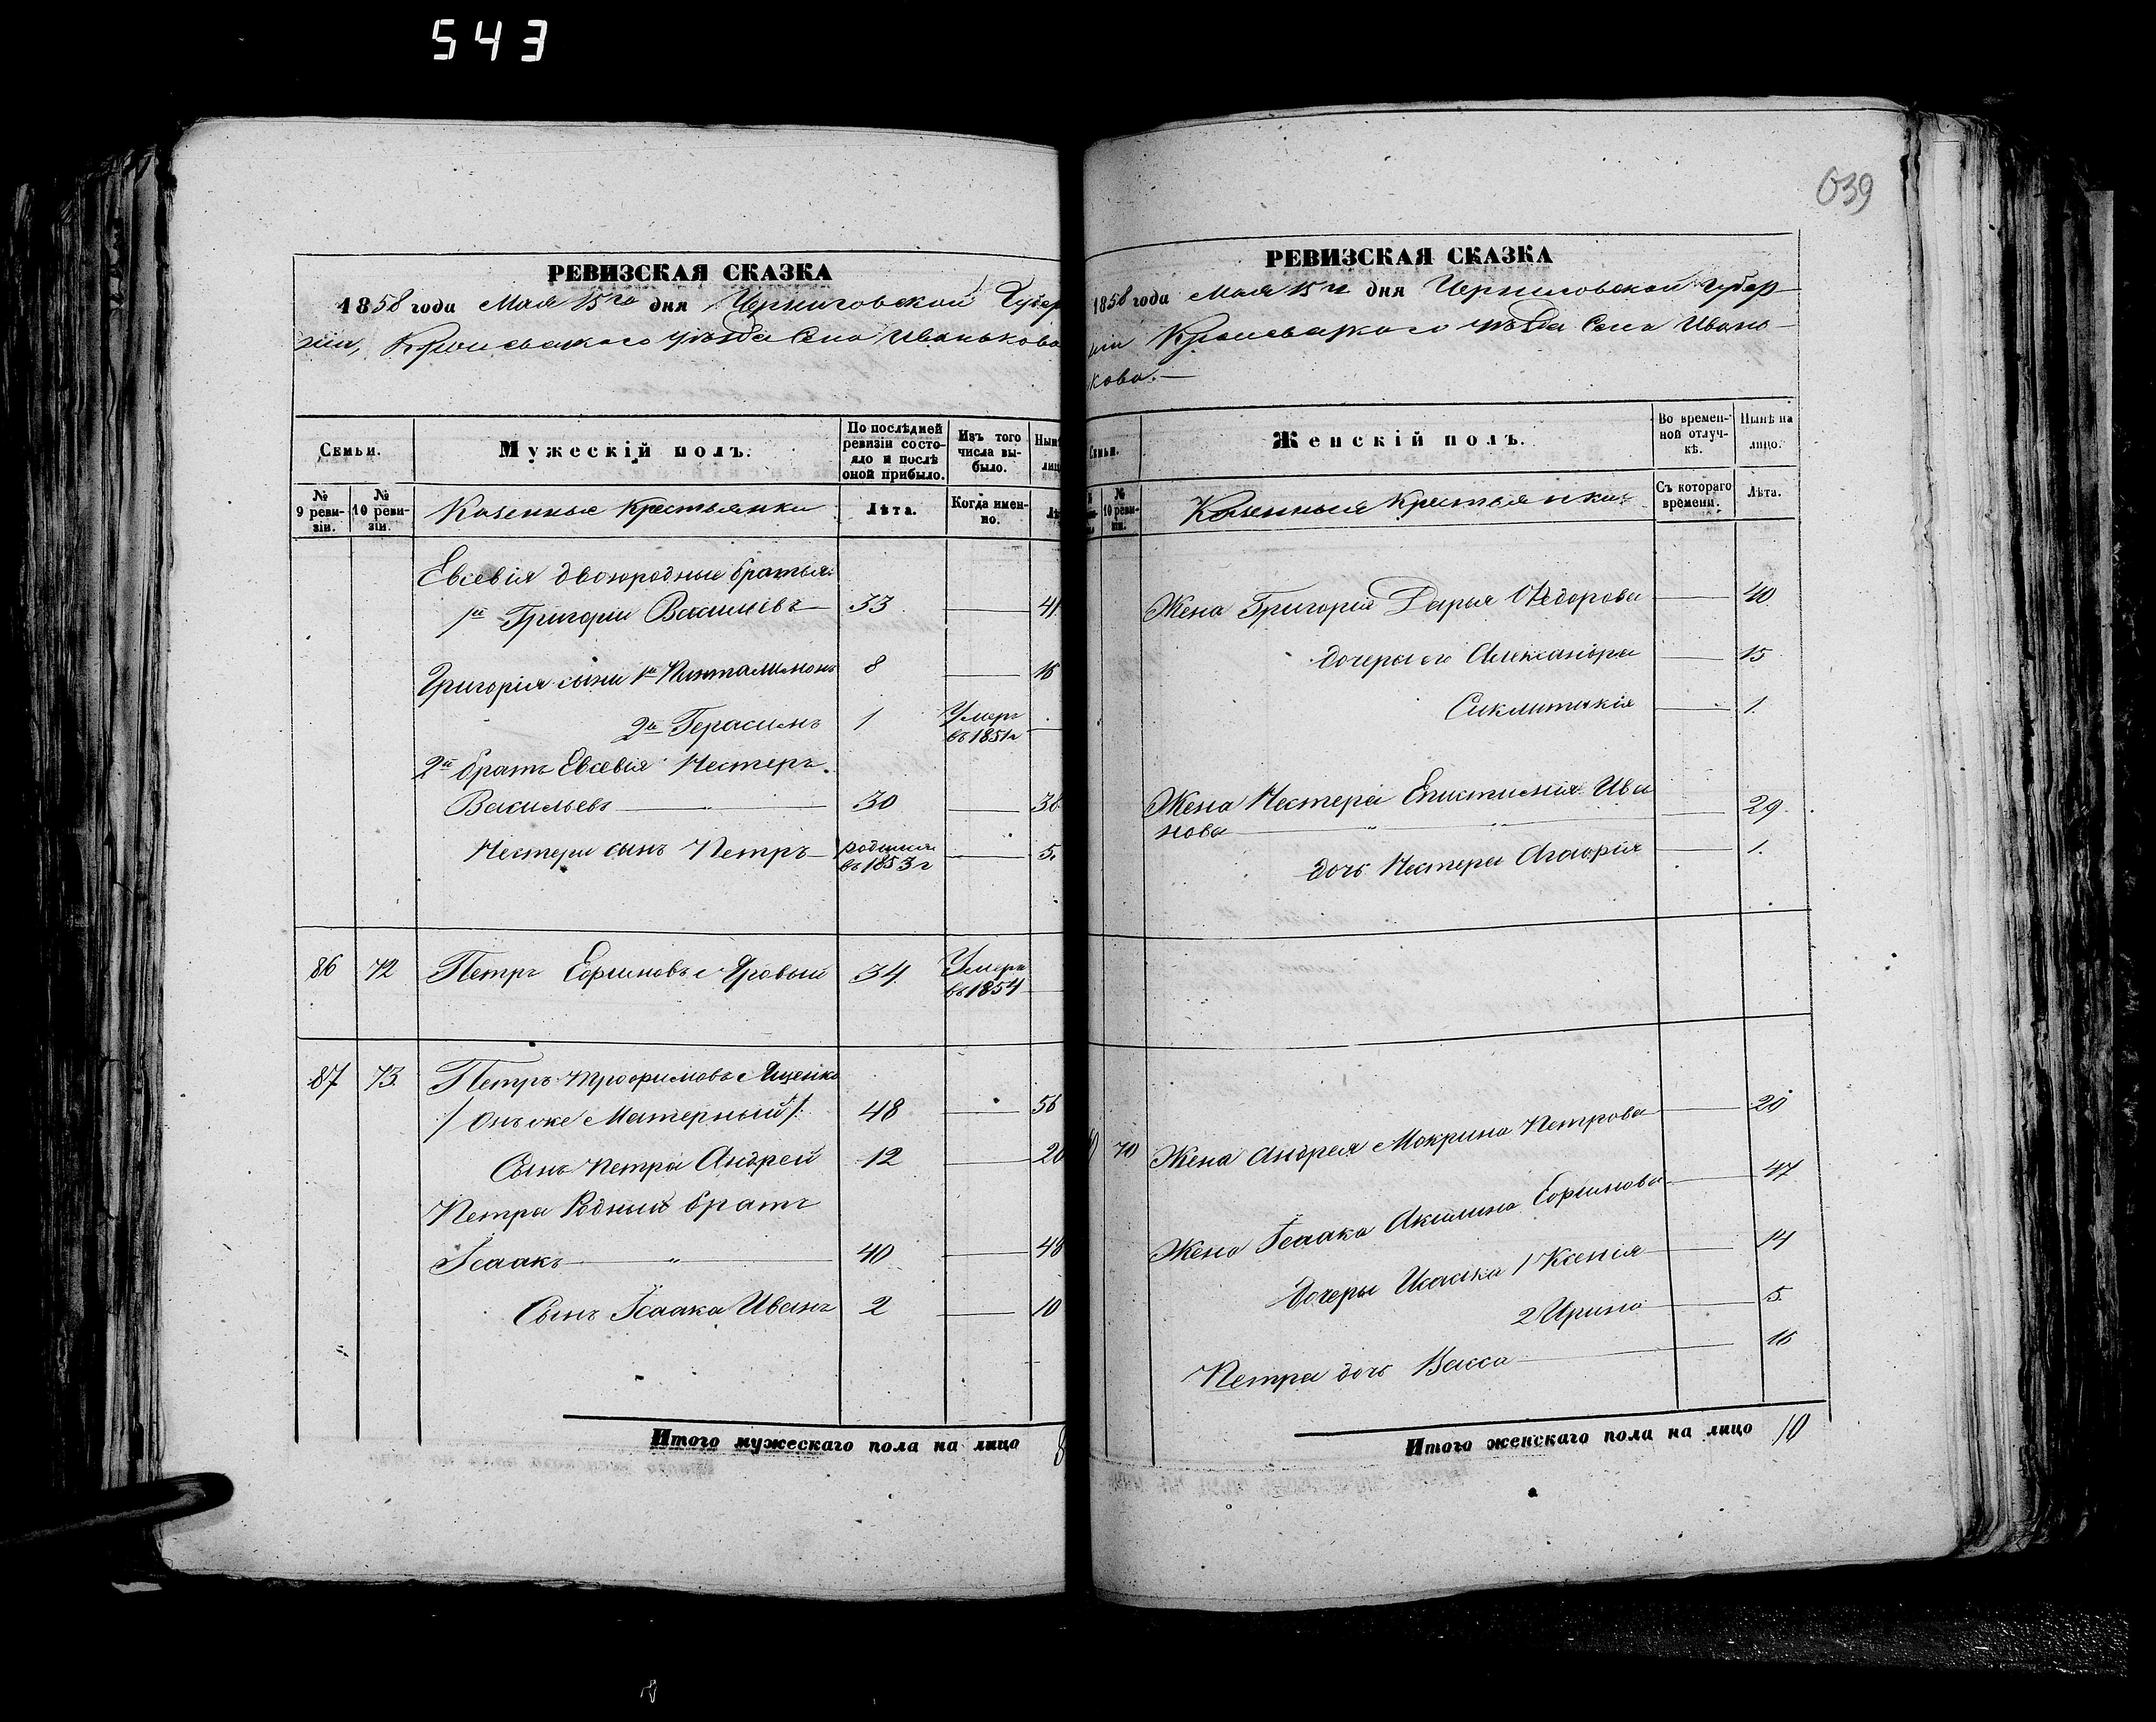 543
РЕВИЗСКАЯ СКАЗКА
1858 года Мая 15го дня Черниговской Губер
ніи, Кролевецкаго уѣзда Села Иванькова
Семьи.
Мужескій полъ.
По послѣдней ревизіи состояло и послѣ оной прибыло.
Изъ того числа выбыло.
Нын
лиц
№ 9 ревизіи.
№ 10 ревизіи.
Казенные Крестьянки
Лѣта.
Когда именно.
Лѣ
Евсевія двоюродные братья:
1й Григорій Васильевъ 33 41
Григорія сыны 1й Пантелимонъ 8 16
2й Герасимъ 1 Умеръ въ 1851г
2й братъ Евсевія Нестеръ
Васильевъ 30 38
Нестера сынъ Петръ родился въ 1853г 5.
86 72 Петръ Ефимовъ Яровый 34 Умеръ въ 1854
87 73. Петръ Трофимовъ Яценко
/ Онъ же Матерный / 48 56
Сынъ Петра Андрей 12 20
Петра Родный братъ
Ісаакъ 40 48
Сынъ Ісаака Иванъ 2 10
Итого мужескаго пола на лицо 8
039
РЕВИЗСКАЯ СКАЗКА
1858 года Мая 15го дня Черниговской Губер
ніи Кролевецкаго уѣзда Села Ивань
кова.
Семьи.
Женскій полъ.
Во временной отлучкѣ.
Нынѣ на лицо.
№ 10 ревизіи.
Казенныя Крестьянки
Съ котораго времени.
Лѣта.
Жена Григорія Дарья Ѳедорова 40
дочеры его Александра 15
Синклитикія 1.
Жена Нестера Епистимія Ива
нова 29
дочь Нестера Агафія 1.
70 Жена Андрея Мокрина Петрова 20
Жена Ісаака Акилина Ефимова 47
Дочеры Исаака 1 Ксенія 14
2 Ирина 5.
Петра дочь Васса 16
Итого женскаго пола на лицо 10